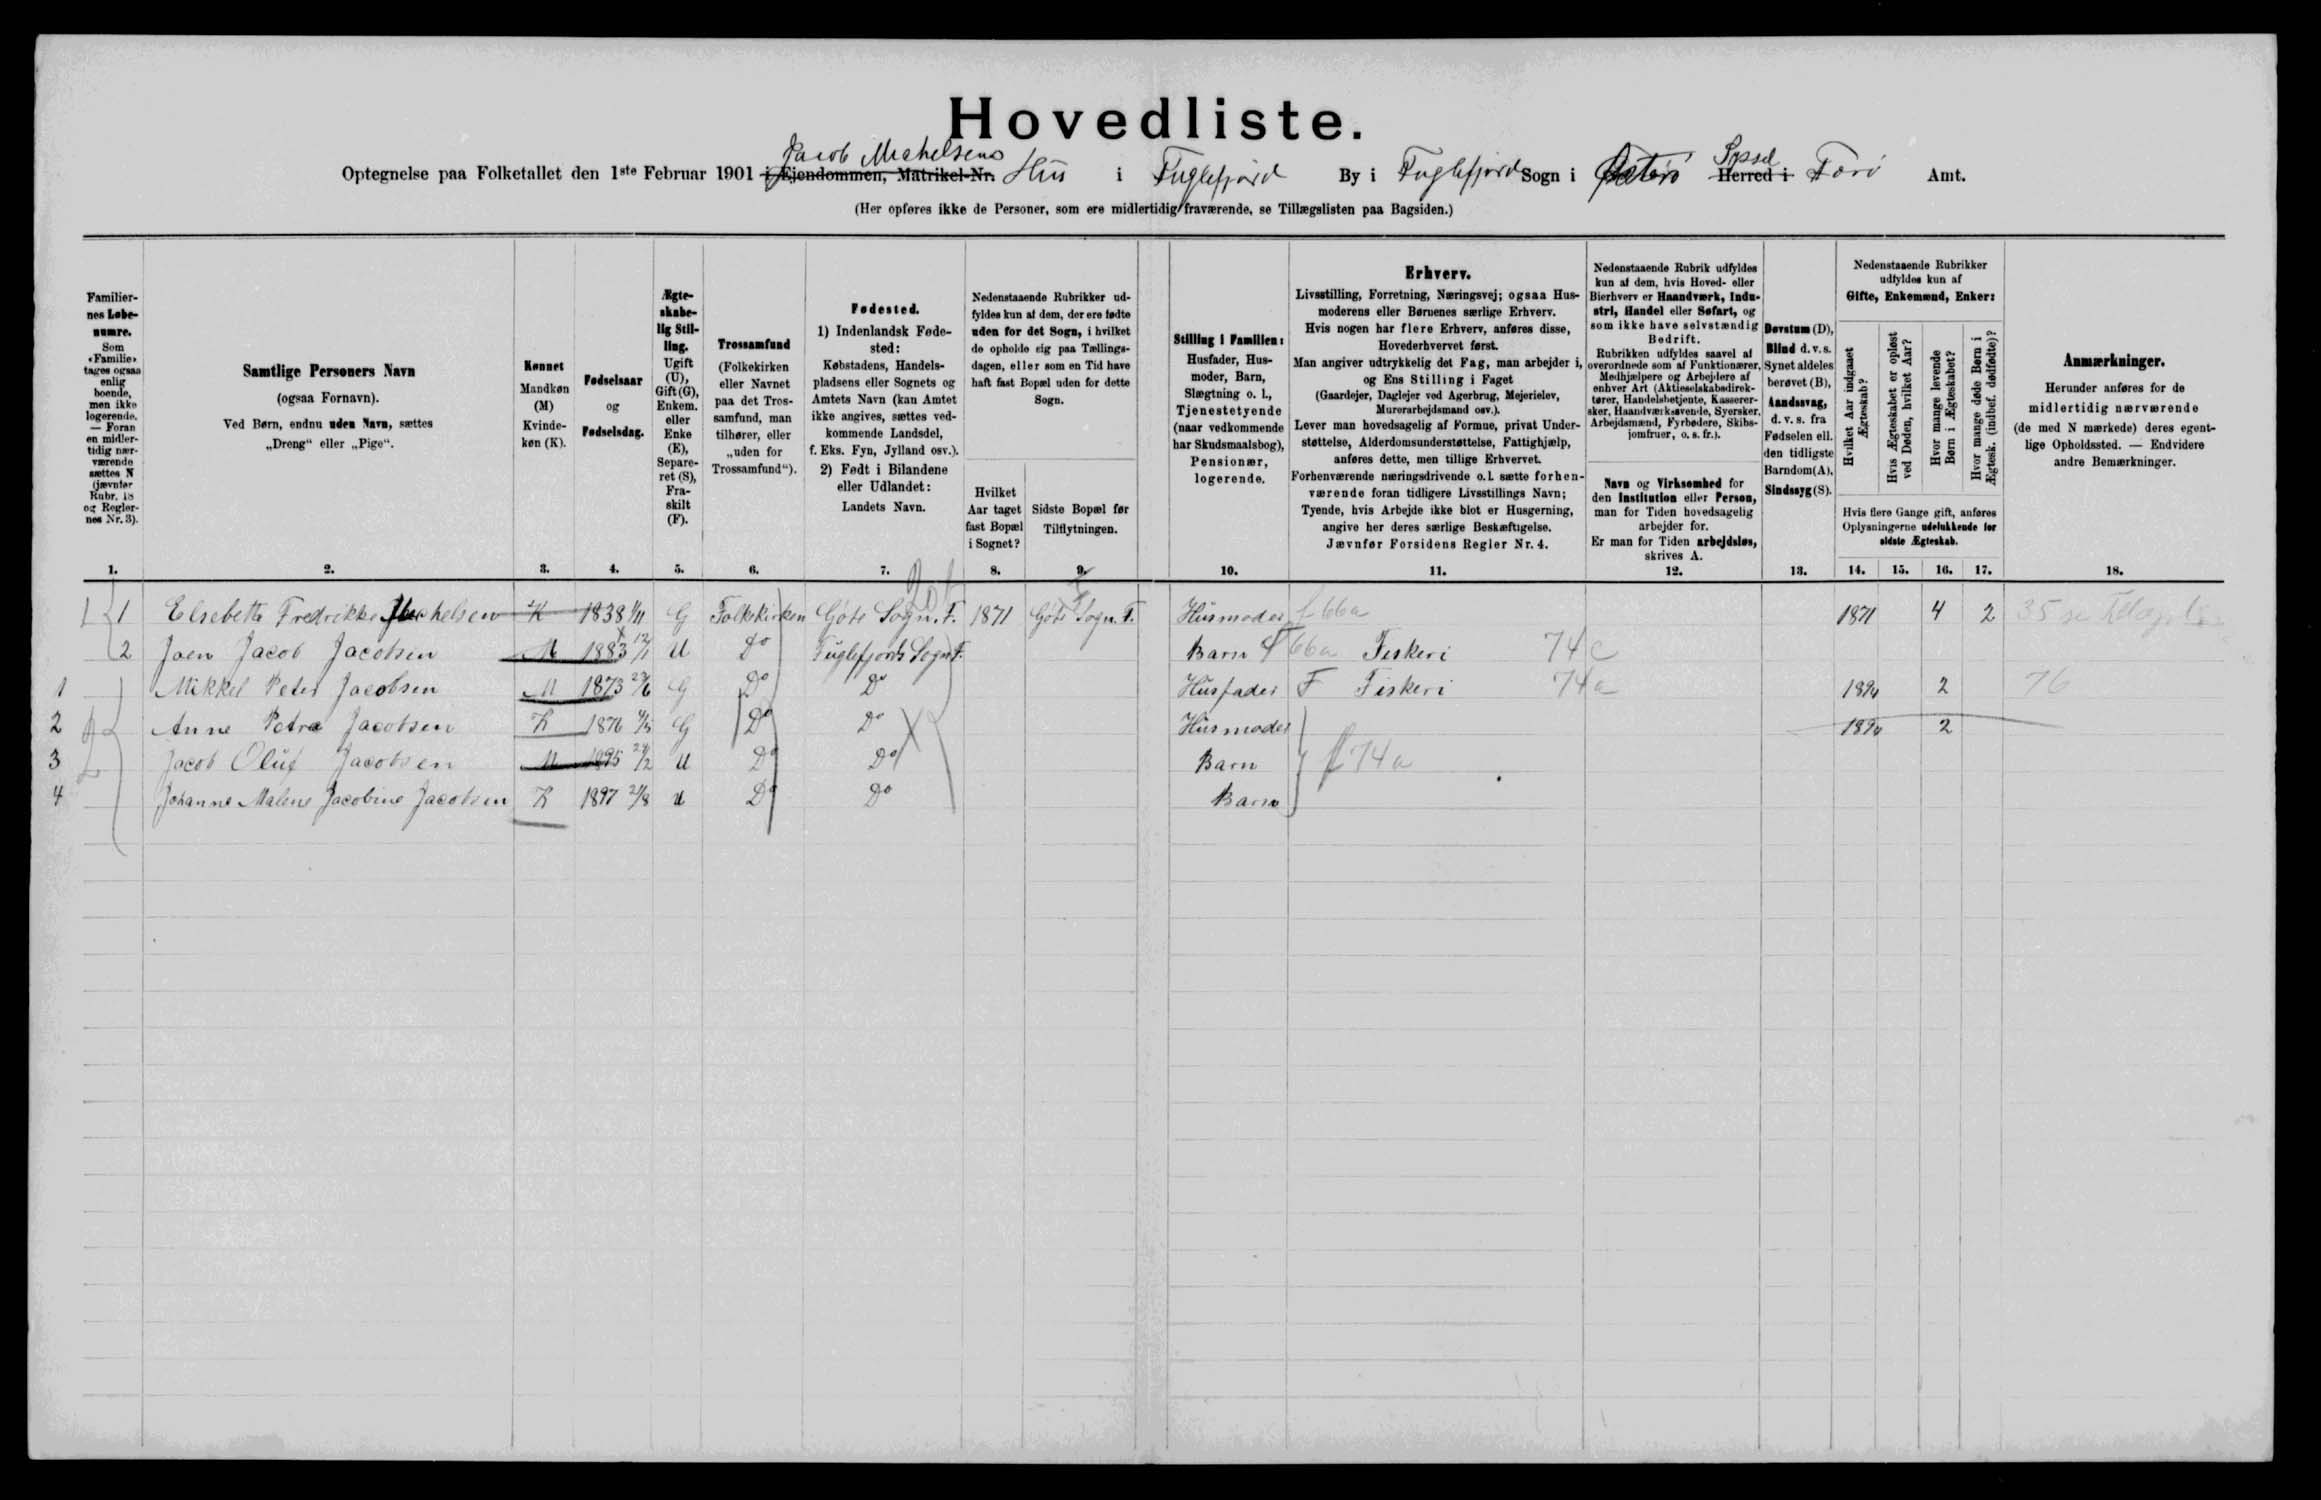 Hovedliste.
Jacob Michelsens Syssel
Optegnelse paa Folketallet den 1ste Februar 1901 i Ejendommen, Matrikel-Nr. Hus i Fuglefjord By i Fuglefjord Sogn i Østerø Herred i Færø Amt.
(Her opføres ikke de Personer, som ere midlertidig fraværende, se Tillægslisten paa Bagsiden.)
Familiernes Løbenumre.
Som «Familie» tages ogsaa enlig boende, men ikke logerende. — Foran en midlertidig nærværende sættes N (jævnfør Rubr. 18 og Reglernes Nr. 3).
1.
Samtlige Personers Navn
(ogsaa Fornavn).
Ved Børn, endnu uden Navn, sættes
„Dreng“ eller „Pige“.
2.
Kønnet
Mandkøn (M) Kvindekøn (K).
3.
Fødselsaar
og
Fødselsdag.
4.
Ægteskabelig Stilling.
Ugift (U), Gift (G), Enkem. eller Enke (E), Separeret (S), Fraskilt (F).
5.
Trossamfund
(Folkekirken eller Navnet paa det Trossamfund, man tilhører, eller „uden for Trossamfund“).
6.
Fødested.
1) Indenlandsk Fødested:
Købstadens, Handelspladsens eller Sognets og Amtets Navn (kan Amtet ikke angives, sættes vedkommende Landsdel, f. Eks. Fyn, Jylland osv.).
2) Født i Bilandene eller Udlandet:
Landets Navn.
7.
Nedenstaaende Rubrikker udfyldes kun af dem, der ere fødte uden for det Sogn, i hvilket de opholde sig paa Tællingsdagen, eller som en Tid have haft fast Bopæl uden for dette Sogn.
Hvilket Aar taget fast Bopæl i Sognet?
8.
Sidste Bopæl før Tilflytningen.
9.
Stilling i Familien:
Husfader, Husmoder, Barn, Slægtning o. l., Tjenestetyende (naar vedkommende har Skudsmaalsbog), Pensionær, logerende.
10.
Erhverv.
Livsstilling, Forretning, Næringsvej; ogsaa Husmoderens eller Børnenes særlige Erhverv.
Hvis nogen har flere Erhverv, anføres disse, Hovederhvervet først.
Man angiver udtrykkelig det Fag, man arbejder i, og Ens Stilling i Faget
(Gaardejer, Daglejer ved Agerbrug, Mejerielev, Murerarbejdsmand osv.).
Lever man hovedsagelig af Formue, privat Understøttelse, Alderdomsunderstøttelse, Fattighjælp, anføres dette, men tillige Erhvervet.
Forhenværende næringsdrivende o. l. sætte forhenværende foran tidligere Livsstillings Navn;
Tyende, hvis Arbejde ikke blot er Husgerning, angive her deres særlige Beskæftigelse.
Jævnfør Forsidens Regler Nr. 4.
11.
Nedenstaaende Rubrik udfyldes kun af dem, hvis Hoved- eller Bierhverv er Haandværk, Industri, Handel eller Søfart, og som ikke have selvstændig Bedrift.
Rubrikken udfyldes saavel af overordnede som af Funktionærer, Medhjælpere og Arbejdere af enhver Art (Aktieselskabsdirektører, Handelsbetjente, Kasserersker, Haandværkssvende, Syersker, Arbejdsmænd, Fyrbødere, Skibsjomfruer, o. s. fr.).
Navn og Virksomhed for den Institution eller Person, man for Tiden hovedsagelig arbejder for.
Er man for Tiden arbejdsløs, skrives A.
12.
Døvstum (D), Blind d. v. s. Synet aldeles berøvet (B), Aandssvag, d. v. s. fra Fødselen ell. den tidligste Barndom (A), Sindssyg (S).
13.
Nedenstaaende Rubrikker udfyldes kun af
Gifte, Enkemænd, Enker:
Hvilket Aar indgaaet Ægteskab?
Hvis Ægteskabet er opløst ved Døden, hvilket Aar?
Hvor mange levende Børn i Ægteskabet?
Hvor mange døde Børn i Ægtesk. (indbef. dødfødte)?
Hvis flere Gange gift, anføres Oplysningerne udelukkende for sidste Ægteskab.
14. 15. 16. 17.
Anmærkninger.
Herunder anføres for de midlertidig nærværende (de med N mærkede) deres egentlige Opholdssted. — Endvidere andre Bemærkninger.
18.
1 Elsebette Fredrikke Michelsen K 1838 1/11 G Folkekirken Gøte Sogn. F. 1871 Gøte Sogn. F. Husmoder f 66a 1871 4 2 35 se
2 Joen Jacob Jacobsen M 1883 12/1 U Do Fuglefjords Sogn F. Barn F 66a Fiskeri 74c
1 Mikkel Peter Jacobsen M 1873 23/6 G Do Do Husfader F Fiskeri 74a 1894 2 76
2 Anne Petra Jacobsen K 1876 4/5 G Do Do Husmoder 1894 2
3 Jacob Oluf Jacobsen M 1895 24/2 U Do Do Barn f 74a
4 Johanne Malene Jacobine Jacobsen K 1897 21/8 U Do Do Barn